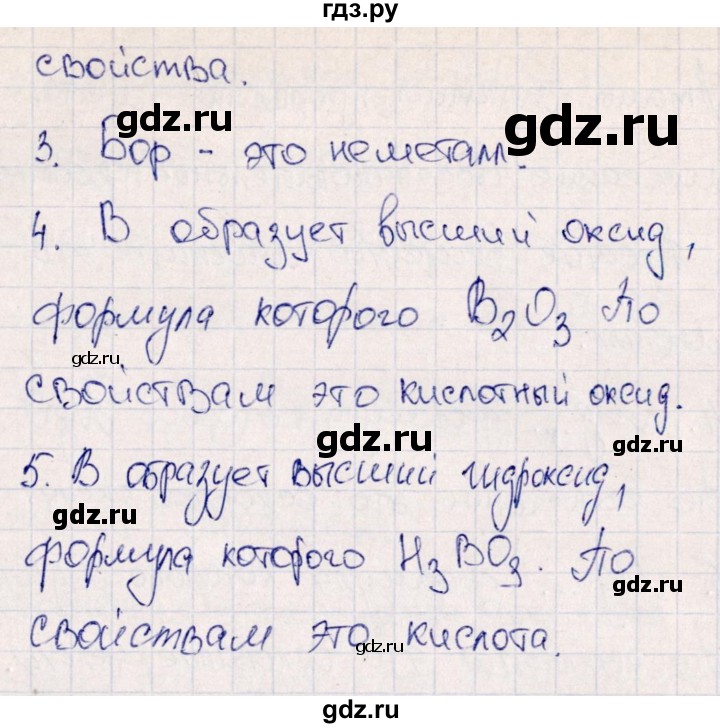 гдз.ру
свойства.
gdz.ru gdz.ru
3. Бор - это неметалл.
4. В образует высший оксид,
формула которого B2O3 По
gdz.ru gdz.ru
свойствам это кислотный оксид.
gdz.ru gdz.ru
5. В образует высший гидроксид,
gdz.ru
формула которого H3BO3. По
gdz.ru
свойствам это кислота.
gdz.ru
gdz.ru